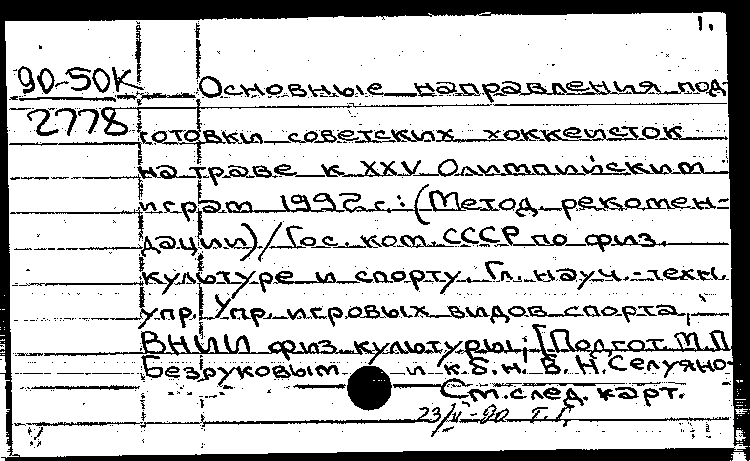 1.
90-50К Основные направления под-
2778 готовки советских хоккеисток
на траве к XXV Олимпийским
играм 1992 г.: (Метод. рекомен-
дации) / Гос. ком. СССР по физ.
культуре и спорту. Гл. науч.-техн.
упр. Упр. игровых видов спорта,
ВНИИ физ. культуры; [Подгот. М.П.
Безруковым и к.б.н. В.Н. Селуяно-
См. след. карт.
23/V-90 Т.Г.